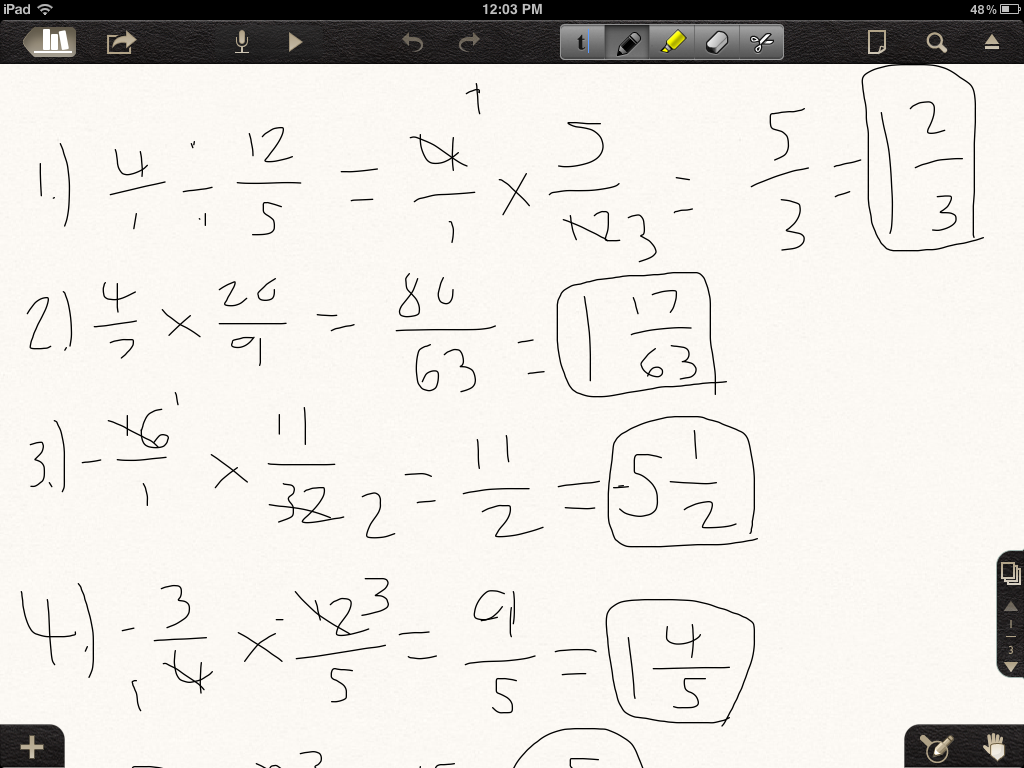 iPad 12:03 PM 48%
t
1.) 4/1 ÷ 12/5 = 4/1 1 × 5/12 3 = 5/3 = 1 2/3
2.) 4/7 × 20/9 = 80/63 = 1 17/63
3.) - 16/1 1 × 11/32 2 = 11/2 = -5 1/2
4.) - 3/4 1 × - 12/5 3 = 9/5 = 1 4/5
1
3
3
5